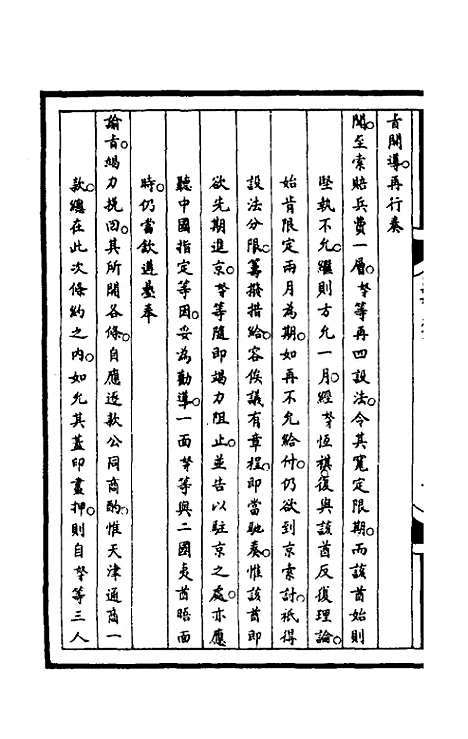 旨開導再行奏
聞至索賠兵費一層。奴才等再四設法。令其寬定限期。而該酋始則
堅執不允。繼則方允一月。經奴才恆祺。復與該酋反復理論。
始肯限定兩月為期。如再不允給付。仍欲到京索討。祇得
設法分限。籌撥措給。容俟議有章程。即當馳奏。惟該酋即
欲先期進京。奴才等隨即竭力阻止。並告以駐京之處。亦應
聽中國指定等因。妥為勸導。一面奴才等與二國夷酋晤面
時。仍當欽遵疊奉
諭旨。竭力挽回。其所開各條。自應逐款公同商酌。惟天津通商一
款。總在此次條約之內。如允其蓋印畫押。則自奴才等三人